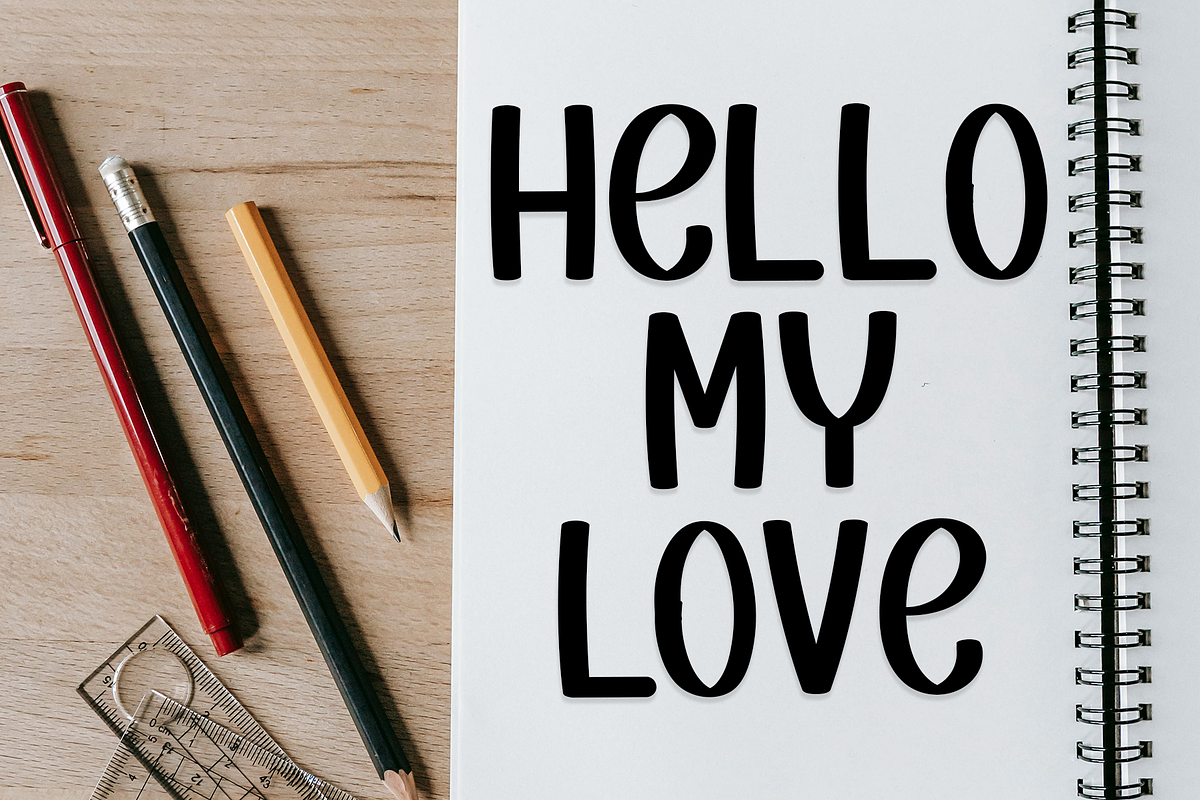 HeLLO
MY
LOVe